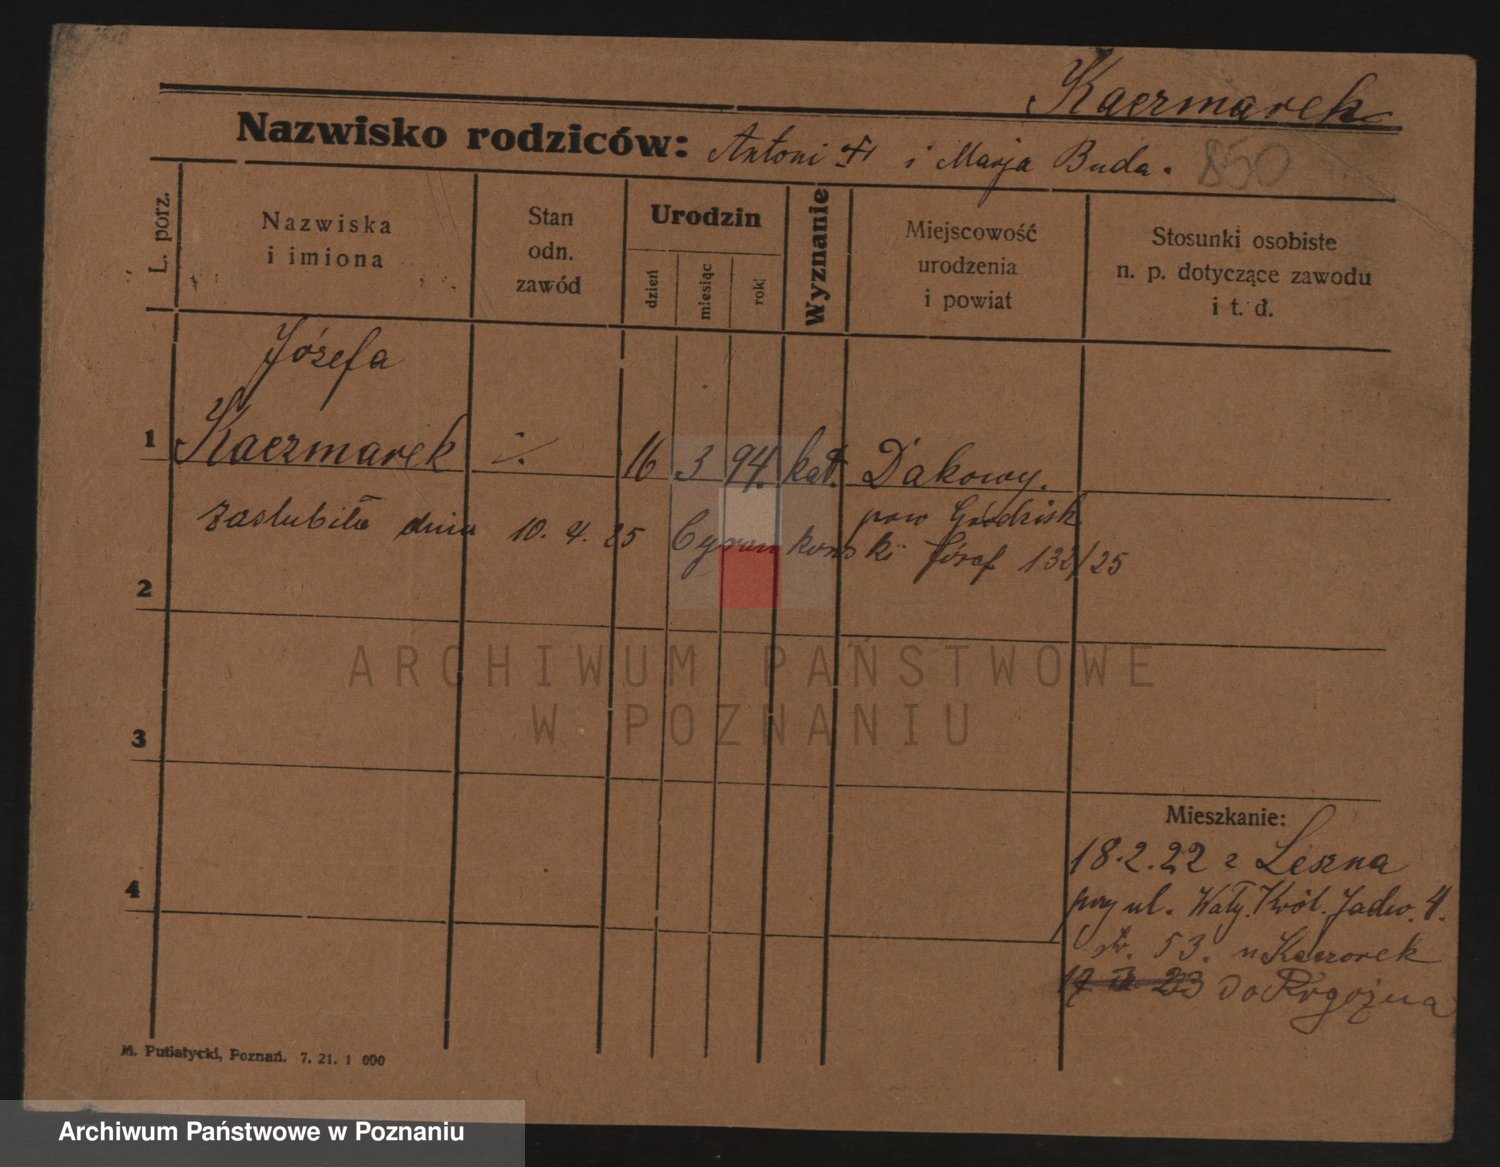 Kaczmarek
Nazwisko rodziców: Antoni i Marja Buda. 850
L. porz.
Nazwiska i imiona
Stan odn. zawód
Urodzin
dzień miesiąc rok
Wyznanie
Miejscowość urodzenia i powiat
Stosunki osobiste n. p. dotyczące zawodu i t. d.
Józefa
1 Kaczmarek ./. 16 3 94. kat. Dakowy.
pow Grodzisk
zaślubiła dnia 10. 4. 25 Cyrankowski Józef 132/25
2
3
4
ARCHIWUM PAŃSTWOWE
W POZNANIU
Mieszkanie:
18.2.22 z Leszna
przy ul. Wały Król. Jadw. 4.
str. 53. u Kaczorek
23 do
M. Putiatycki, Poznań. 7. 21. 1 000
Archiwum Państwowe w Poznaniu